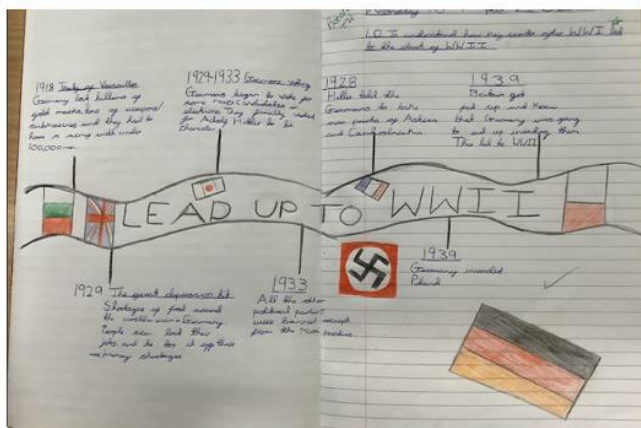 L.O To understand how key events after WWI led
to the start of WWII
1918 Treaty of Versailles
Germany lost billions of
gold marks, lots of weapons/
submarines and they had to
have a army with under
100,000 men
1929-1933 German voting
Germans began to vote for
more Nazi Candidates in
elections they finally voted
for Adolf Hitler to be
1928
Hitler told the
Germans to take
over parts of
and
1939
Britain got
fed up and knew
that Germany was going
to end up invading them
This led to WWII
LEAD UP TO WWII
1929 The great depression hit
Shortages of food around
the western
People even lost their
jobs and to top it off there
money shortages
1933
All the other
political parties
were banned except
from the Nazi
1939
Germany invaded